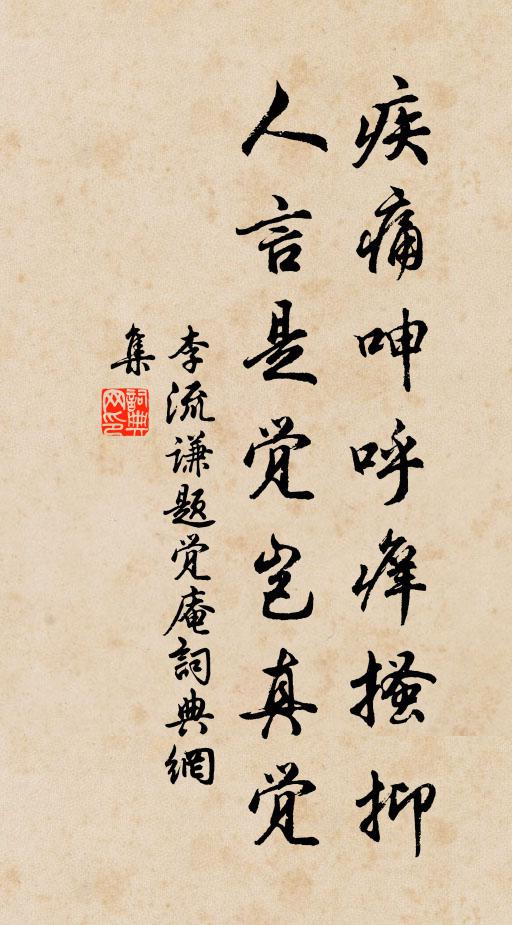 疾痛呻呼痒搔抑
人言是觉岂真觉
李流谦题觉庵詞典網
集
詞典
网印